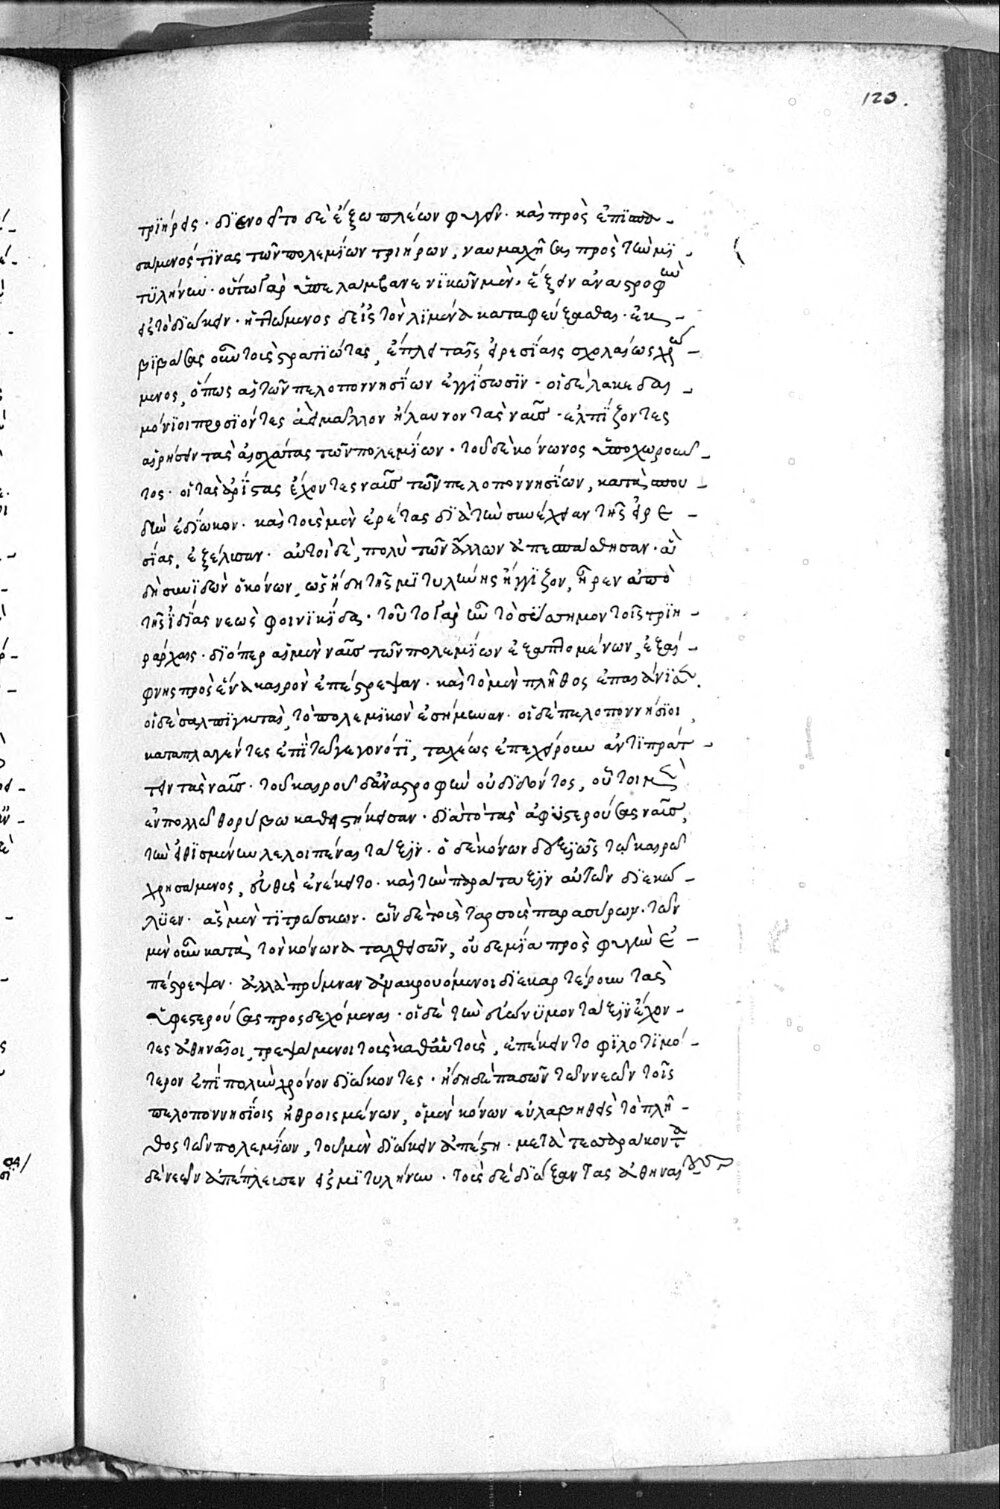 τριήρεις· διενοεῖτο δὲ ἔξω πλέων φυγεῖν· καὶ πρὸς ἐπισπα-
σάμενός τινας τῶν πολεμίων τριήρων, ναυμαχῆσαι πρὸς τὴν μι-
τυλήνην· οὕτω γὰρ ὑπελάμβανε νικῶν μὲν· ἕξειν ἀναστροφὴν
εἰς τὸ διώκειν· ἡττώμενος δὲ εἰς τὸν λιμένα καταφεύξασθαι· ἐκ-
βιβάσας οὖν τοὺς στρατιώτας, ἔπλει ταῖς εἰρεσίαις σχολαίως χρώ-
μενος, ὅπως αἱ τῶν πελοποννησίων ἐγγίσωσιν· οἱ δὲ λακεδαι-
μόνιοι προσιόντες ἀεὶ μᾶλλον ἤλαυνον τὰς ναῦς· ἐλπίζοντες
αἱρήσειν τὰς αἰσχάτας τῶν πολεμίων· τοῦ δὲ κόνωνος ὑποχωροῦν-
τος· οἱ τὰς ἀρίστας ἔχοντες ναῦς τῶν πελοποννησίων, κατὰ σπου-
δὴν ἐδίωκον· καὶ τοὺς μὲν ἐρέτας διὰ τὴν συνέχειαν τῆς εἰρε-
σίας, ἐξέλυσαν· αὐτοὶ δὲ, πολὺ τῶν ἄλλων ἀπεσπάσθησαν· ἃ
δὴ συνιδὼν ὁ κόνων, ὡς ἤδη τῆς μιτυλήνης ἤγγιζον, ἦρεν ἀπὸ
τῆς ἰδίας νεὼς φοινικίδα· τοῦτο γὰρ ἦν τὸ σύσσημον τοῖς τριη-
ράρχοις· διόπερ αἱ μὲν ναῦς τῶν πολεμίων ἐξαπτομένων, ἐξαί-
φνης πρὸς ἕνα καιρὸν ἐπέστρεψαν· καὶ τὸ μὲν πλῆθος ἐπαιάνισεν.
οἱ δὲ σαλπιγκταὶ, τὸ πολεμικὸν ἐσήμαναν· οἱ δὲ πελοποννήσιοι,
καταπλαγέντες ἐπὶ τῷ γεγονότι, ταχέως ἐπεχείρουν ἀντιπράτ-
τειν τὰς ναῦς· τοῦ καιροῦ δ' ἀναστροφὴν οὐ διδόντος, οὗτοι μὲν
ἐν πολλῷ θορύβῳ καθεστήκεισαν· διὰ τὸ τὰς ἀφυστερούσας ναῦς,
τὴν εἰθισμένην λελοιπέναι τάξιν· ὁ δὲ κόνων δεξιῶς τῷ καιρῷ
χρησάμενος, εὐθὺς ἐνέκειτο· καὶ τὴν παράταξιν αὐτῶν διεκώ-
λυεν· ἃς μὲν τιτρώσκων· ὧν δὲ τοὺς ταρσοὺς παρασύρων· τῶν
μὲν οὖν κατὰ τὸν κόνωνα ταχθεισῶν, οὐδεμία πρὸς φυγὴν ἐ-
πέστρεψεν· ἀλλὰ πρύμναν ἀνακρουόμενοι διεκαρτέρουν τὰς
ὑφεστερούσας προσδεχόμεναι· οἱ δὲ τὴν εὐώνυμον τάξιν ἔχον-
τες ἀθηναῖοι, τρεψάμενοι τοὺς καθ' αὑτοὺς, ἐπέκειντο φιλοτιμό-
τερον ἐπὶ πολὺν χρόνον διώκοντες· ἤδη δὲ πασῶν τῶν νεῶν τοῖς
πελοποννησίοις ἠθροισμένων, ὁ μὲν κόνων εὐλαβηθεὶς τὸ πλῆ-
θος τῶν πολεμίων, τοῦ μὲν διώκειν ἀπέστη· μετὰ τεσσαράκοντα
δὲ νεῶν ἀπέπλευσεν εἰς μιτυλήνην· τοὺς δὲ διώξαντας ἀθηναίους